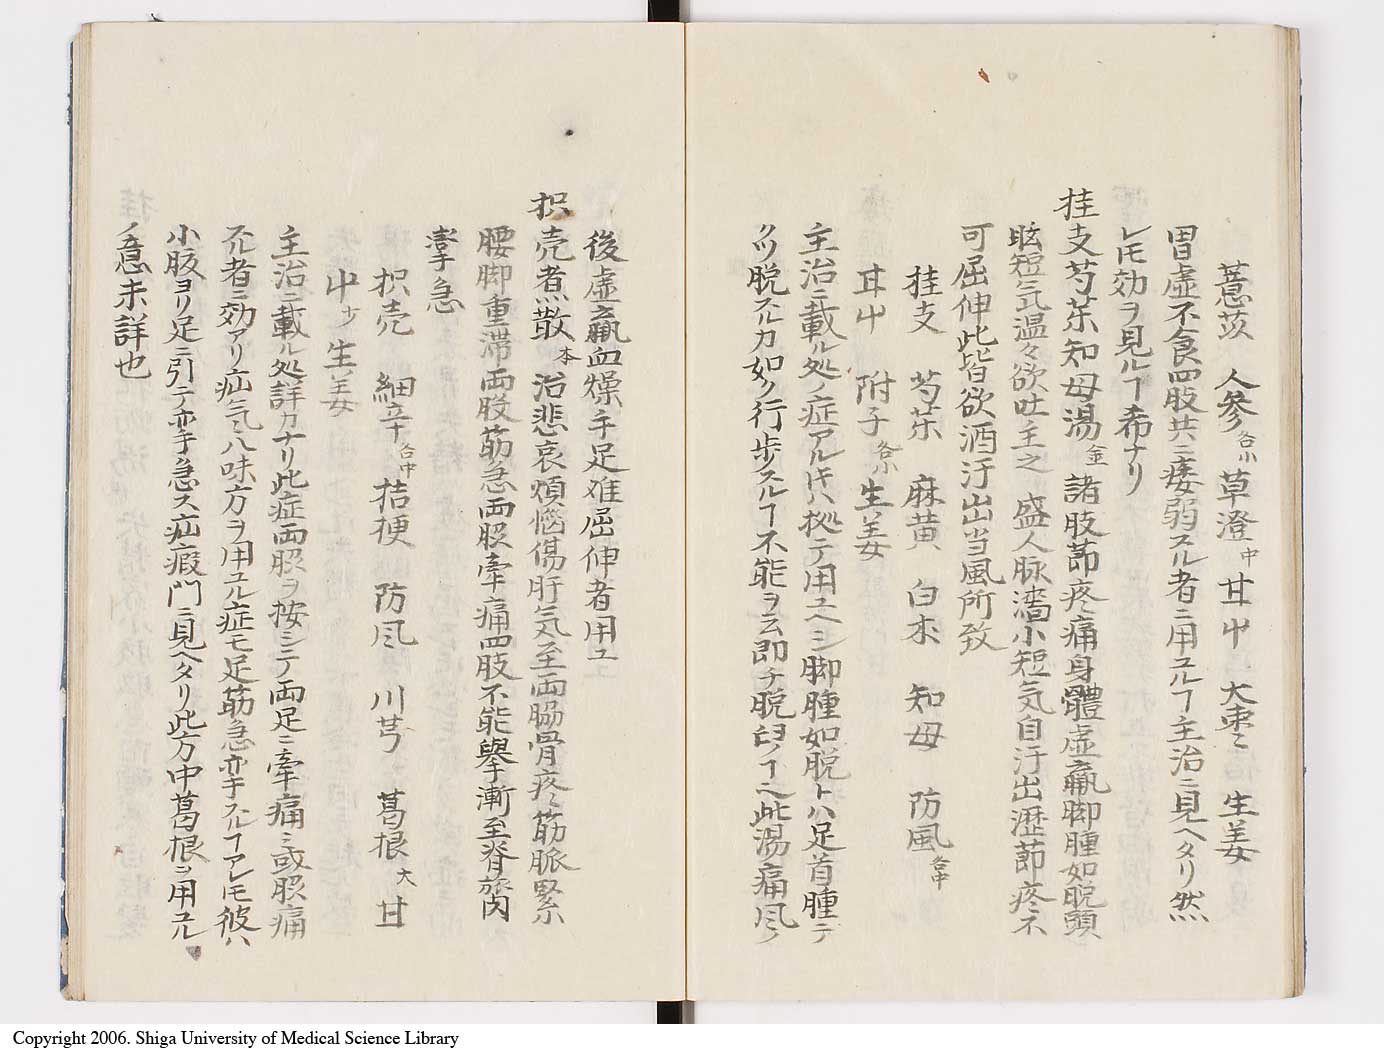 薏苡 人参各小 草澄中 甘艸 大棗 生姜
胃虚不食四肢共ニ痿弱スル者ニ用ユルヿ主治ニ見ヘタリ然
レモ効ヲ見ルヿ希ナリ
桂支芍薬知母湯金 諸肢節疼痛身體虚羸脚腫如脱頭
眩短気温々欲吐主之 盛人脉濇小短気自汗出歴節疼不
可屈伸此皆欲酒汗出当風所致
桂支 芍薬 麻黄 白朮 知母 防風各中
甘艸 附子各小 生姜
主治ニ載ル処ノ症アル氏ハ拠テ用ユヘシ脚腫如脱トハ足首腫テ
クツ脱スルカ如ク行歩スルヿ不能ヲ云即チ脱臼ノヿ也此湯痛风ノ
後虚羸血燥手足难屈伸者用ユ
枳壳煮散本 治悲哀煩惱傷肝気至両脇骨疼筋脈緊
腰脚重滞両股筋急両脇牽痛四肢不能擧漸至脊膂肉
攣急
枳壳 細辛各中 桔梗 防风 川芎 葛根大 甘
艸少 生姜
主治ニ載ル処詳カナリ此症両脇ヲ按シテ両足ニ牽痛ミ或脇痛
スル者ニ効アリ疝気八味方ヲ用ユル症モ足筋急攣スルヿアレモ彼ハ
小腹ヨリ足ニ引テ攣急ス疝瘕門ニ見ヘタリ此方中葛根ヲ用ユル
ノ意未詳也
Copyright 2006. Shiga University of Medical Science Library